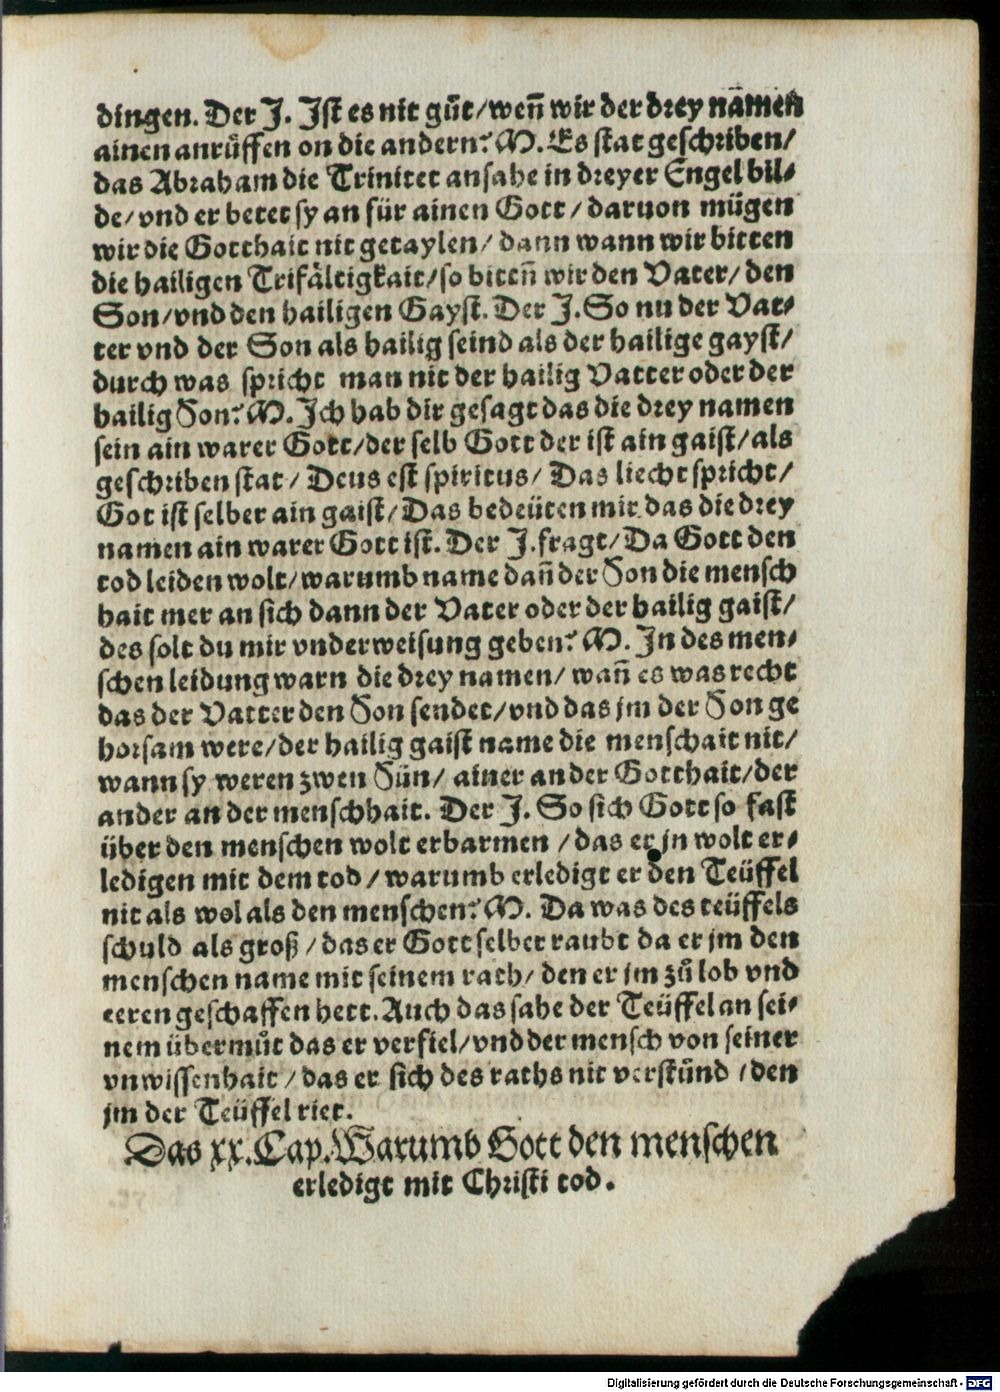 dingen. Der J. Jst es nit gůt/weñ wir der drey namen
ainen anrůffen on die andern? M. Es stat geschriben/
das Abraham die Trinitet ansahe in dreyer Engel bil⸗
de/vnd er betet sy an für ainen Gott/daruon mügen
wir die Gotthait nit getaylen/dann wann wir bitten
die hailigen Trifåltigkait/so bitteñ wir den Vater/den
Son/vnd den hailigen Gayst. Der J. So nu der Vat⸗
ter vnd der Son als hailig seind als der hailige gayst/
durch was spricht man nit der hailig Vatter oder der
hailig Son? M. Jch hab dir gesagt das die drey namen
sein ain warer Gott/der selb Gott der ist ain gaist/als
geschriben stat/Deus est spiritus/Das liecht spricht/
Got ist selber ain gaist/Das bedeüten mir das die drey
namen ain warer Gott ist. Der J. fragt/Da Gott den
tod leiden wolt/warumb name dañ der Son die mensch
hait mer an sich dann der Vater oder der hailig gaist/
des solt du mir vnderweisung geben? M. Jn des men⸗
schen leidung warn die drey namen/wañ es was recht
das der Vatter den Son sendet/vnd das jm der Son ge
horsam were/der hailig gaist name die menschait nit/
wann sy weren zwen Sün/ainer an der Gotthait/der
ander an der menschhait. Der J. So sich Gott so fast
über den menschen wolt erbarmen/das er jn wolt er⸗
ledigen mit dem tod/warumb erledigt er den Teüffel
nit als wol als den menschen? M. Da was des teüffels
schuld als groß/das er Gott selber raubt da er jm den
menschen name mit seinem rath/den er jm zů lob vnd
eeren geschaffen hett. Auch das sahe der Teüffel an sei⸗
nem übermůt das er verfiel/vnd der mensch von seiner
vnwissenhait/das er sich des raths nit verstůnd/den
jm der Teüffel riet.
Das xx. Cap. Warumb Gott den menschen
erledigt mit Christi tod.
Digitalisierung gefördert durch die Deutsche Forschungsgemeinschaft - DFG